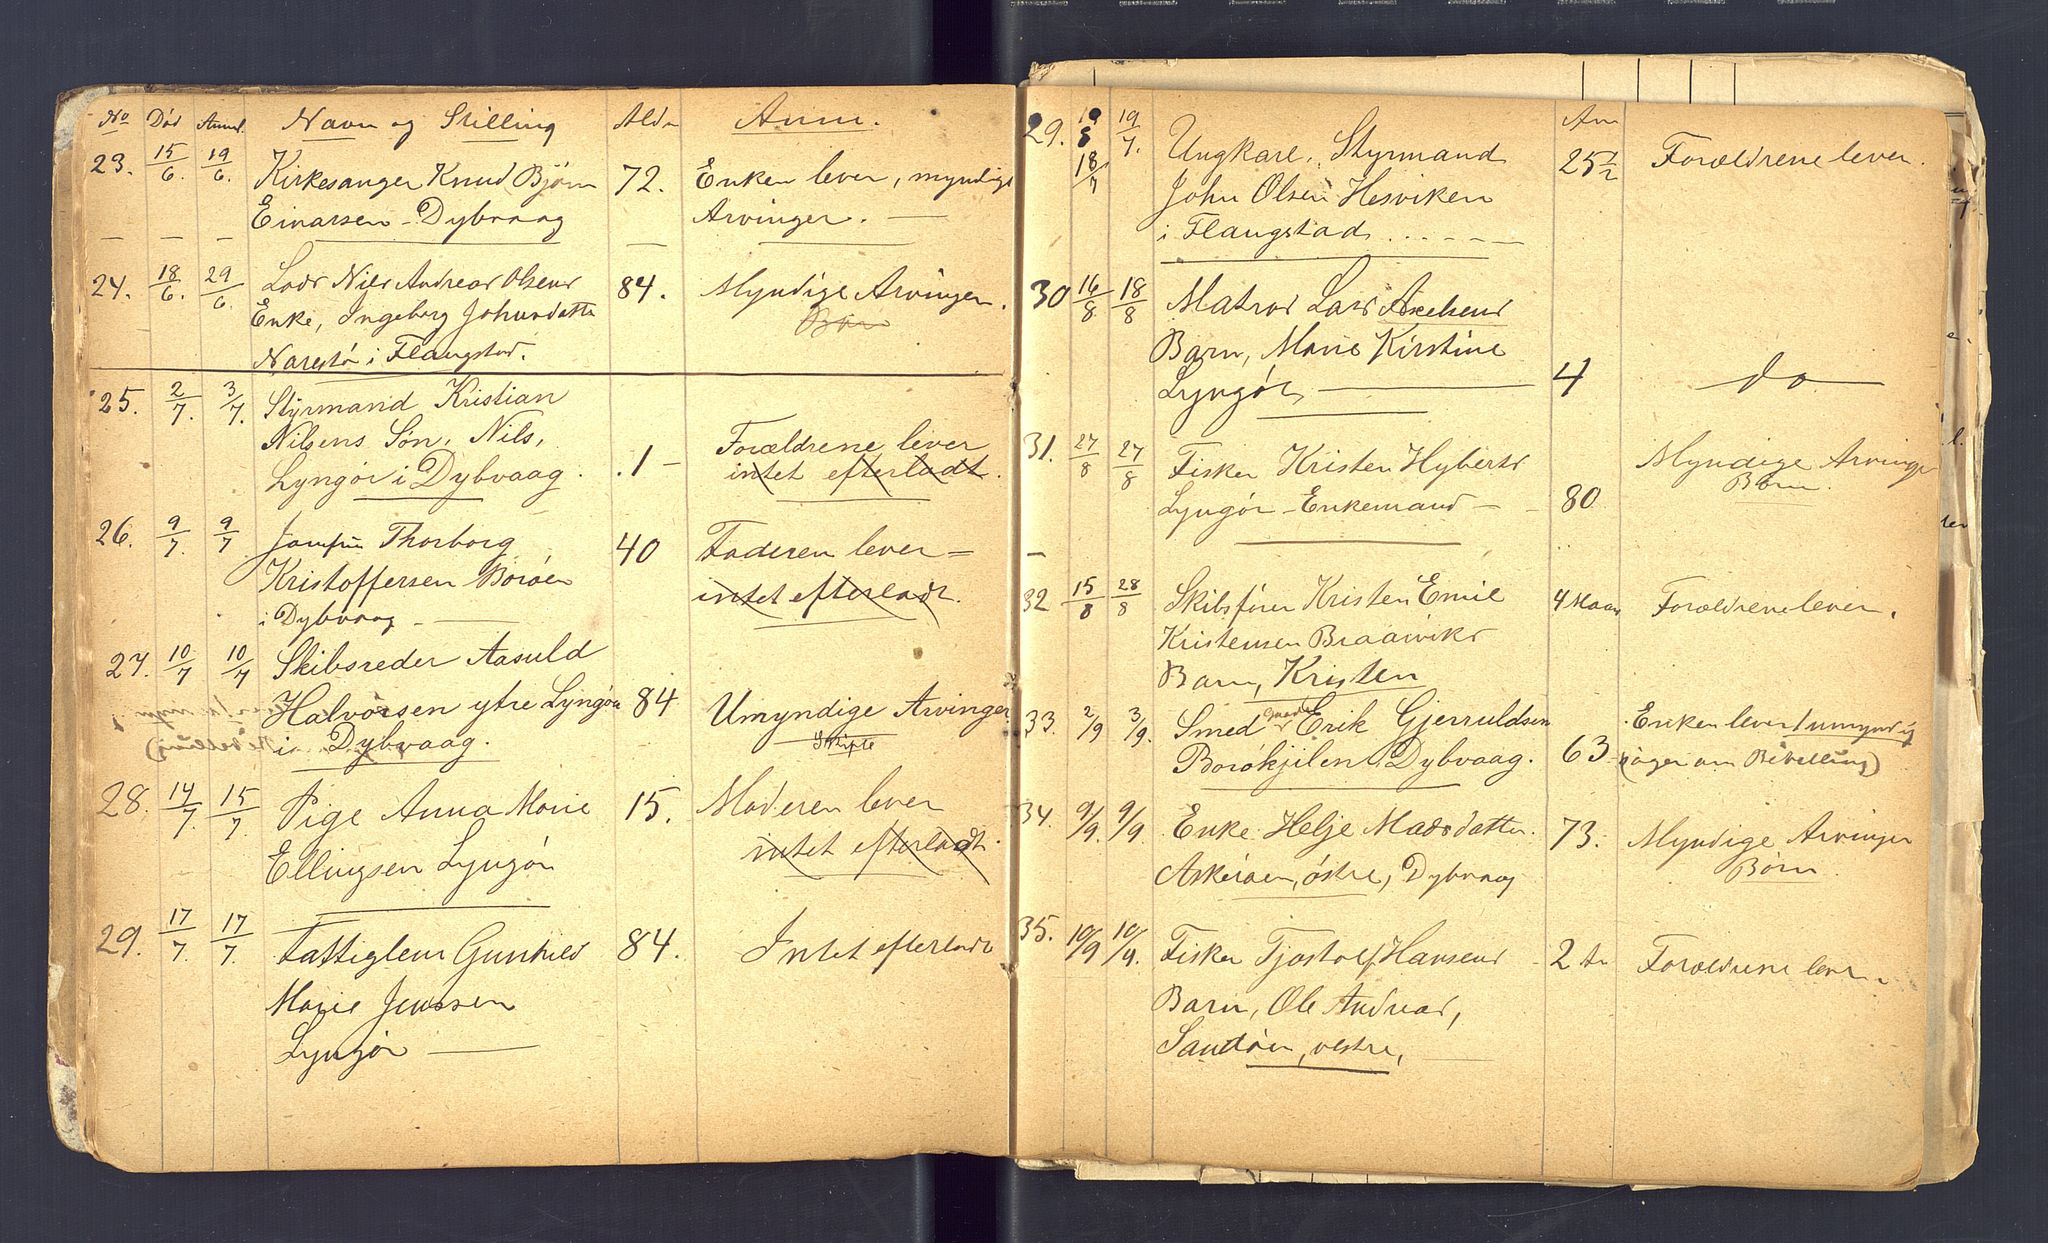 No Død Anm. Navn og Stilling Alder Anm.
23. 15/6 19/6. Kirkesanger Knud Bjørn 72. Enken lever, myndige
Einarsen - Dybvaag Arvinger. —
24. 18/6. 29/6 Lods Niels Andreas Olsens 84. Myndige Arvinger.
Enke, Ingeborg Johnsdatter Børn
Narestø i Flangstad.
25. 2/7. 3/7. Styrmand Kristian
Nilsens Søn, Nils, Forældrene lever
Lyngør i Dybvaag. 1 — intet efterladt.
26. 9/7. 9/7 Jomfru Thorborg 40 Faderen lever —
Kristoffersen Borøen intet efterladt.
i Dybvaag —
27. 10/7 10/7 Skibsreder Aasuld
Halvorsen ytre Lyngør 84 Umyndige Arvinger
i Dybvaag. Skifte
28. 14/7. 15/7. Pige Anna Marie 15. Moderen lever
Ellingsen Lyngør intet efterladt.
29. 17/7. 17/7. Fattiglem Gunhild 84. Intet efterladt
Marie Jenssen
Lyngør —
29. 18/7 19/7. Ungkarl, Styrmand 25 1/2 Forældrene lever.
John Olsen Hesviken
i Flangstad
30 16/8 18/8 Matros Lars Axelsens
Barn, Marie Kirstine
Lyngør, — 4 do
31. 27/8 27/8 Fisker Kristen Hyberts Myndige Arvinger
Lyngør - Enkemand — 80 Børn.
32 15/8 28/8 Skibsfører Kristen Emil 4 Maan Forældrene lever.
Kristensen Braarviks
Barn, Kristen
33. 2/9 3/9. Smed Erik Gjerruldsen Enken lever/umyndig
Borøkjilen Dybvaag. 63 (søger om Bevilling)
34. 9/9. 9/9. Enke Helje Madsdatter. 73. Myndige Arvinger
Askerøen, østre, Dybvaag Børn
35. 10/9 10/9. Fisker Tjostolf Hansens 2 Forældrene lever
Barn, Ole Andreas,
Sandøen, vestre, —